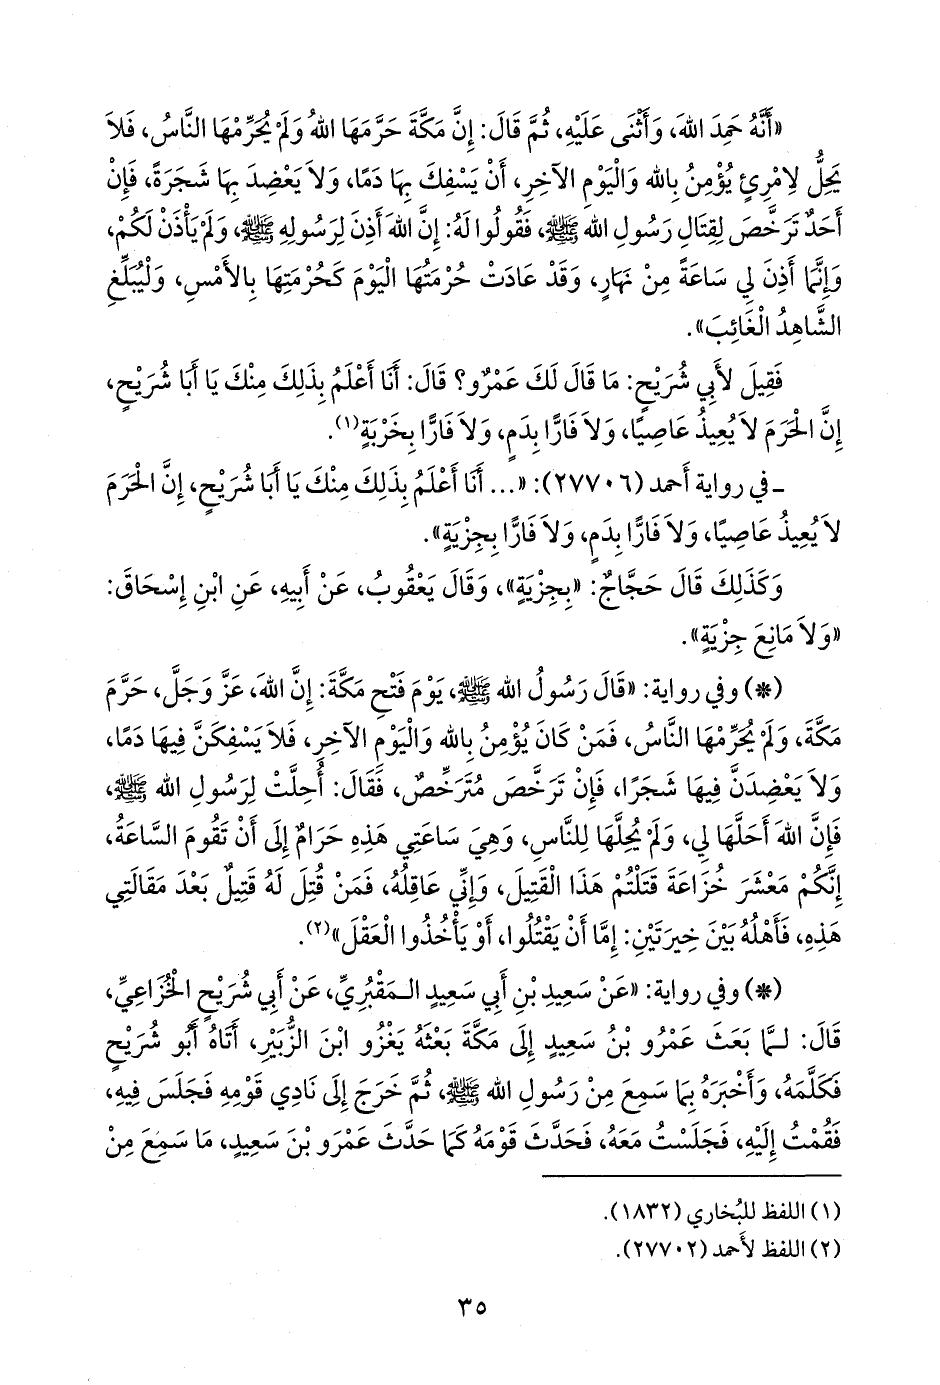 «أَنَّهُ حَمِدَ اللهَ، وَأَثْنَى عَلَيْهِ، ثُمَّ قَالَ: إِنَّ مَكَّةَ حَرَّمَهَا اللهُ وَلَمْ يُحَرِّمْهَا النَّاسُ، فَلاَ
يَحِلُّ لاِمْرِئٍ يُؤْمِنُ بِاللهِ وَالْيَوْمِ الآخِرِ، أَنْ يَسْفِكَ بِهَا دَمًا، وَلاَ يَعْضِدَ بِهَا شَجَرَةً، فَإِنْ
أَحَدٌ تَرَخَّصَ لِقِتَالِ رَسُولِ اللهِ ﷺ، فَقُولُوا لَهُ: إِنَّ اللهَ أَذِنَ لِرَسُولِهِ ﷺ، وَلَمْ يَأْذَنْ لَكُمْ،
وَإِنَّمَا أَذِنَ لِي سَاعَةً مِنْ نَهَارٍ، وَقَدْ عَادَتْ حُرْمَتُهَا الْيَوْمَ كَحُرْمَتِهَا بِالأَمْسِ، وَلْيُبَلِّغِ
الشَّاهِدُ الْغَائِبَ».
فَقِيلَ لأَبِي شُرَيْحٍ: مَا قَالَ لَكَ عَمْرٌو؟ قَالَ: أَنَا أَعْلَمُ بِذَلِكَ مِنْكَ يَا أَبَا شُرَيْحٍ،
إِنَّ الْحَرَمَ لاَ يُعِيذُ عَاصِيًا، وَلاَ فَارًّا بِدَمٍ، وَلاَ فَارًّا بِخَرْبَةٍ(١).
ـ في رواية أحمد (٢٧٧٠٦): «... أَنَا أَعْلَمُ بِذَلِكَ مِنْكَ يَا أَبَا شُرَيْحٍ، إِنَّ الْحَرَمَ
لاَ يُعِيذُ عَاصِيًا، وَلاَ فَارًّا بِدَمٍ، وَلاَ فَارًّا بِجِزْيَةٍ».
وَكَذَلِكَ قَالَ حَجَّاجٌ: «بِجِزْيَةٍ»، وَقَالَ يَعْقُوبُ، عَنْ أَبِيهِ، عَنِ ابْنِ إِسْحَاقَ:
«وَلاَ مَانِعَ جِزْيَةٍ».
(*) وفي رواية: «قَالَ رَسُولُ اللهِ ﷺ، يَوْمَ فَتْحِ مَكَّةَ: إِنَّ اللهَ، عَزَّ وَجَلَّ، حَرَّمَ
مَكَّةَ، وَلَمْ يُحَرِّمْهَا النَّاسُ، فَمَنْ كَانَ يُؤْمِنُ بِاللهِ وَالْيَوْمِ الآخِرِ، فَلاَ يَسْفِكَنَّ فِيهَا دَمًا،
وَلاَ يَعْضِدَنَّ فِيهَا شَجَرًا، فَإِنْ تَرَخَّصَ مُتَرَخِّصٌ، فَقَالَ: أُحِلَّتْ لِرَسُولِ اللهِ ﷺ،
فَإِنَّ اللهَ أَحَلَّهَا لِي، وَلَمْ يُحِلَّهَا لِلنَّاسِ، وَهِيَ سَاعَتِي هَذِهِ حَرَامٌ إِلَى أَنْ تَقُومَ السَّاعَةُ،
إِنَّكُمْ مَعْشَرَ خُزَاعَةَ قَتَلْتُمْ هَذَا الْقَتِيلَ، وَإِنِّي عَاقِلُهُ، فَمَنْ قُتِلَ لَهُ قَتِيلٌ بَعْدَ مَقَالَتِي
هَذِهِ، فَأَهْلُهُ بَيْنَ خِيرَتَيْنِ: إِمَّا أَنْ يَقْتُلُوا، أَوْ يَأْخُذُوا الْعَقْلَ»(٢).
(*) وفي رواية: «عَنْ سَعِيدِ بْنِ أَبِي سَعِيدٍ الـمَقْبُرِيِّ، عَنْ أَبِي شُرَيْحٍ الْخُزَاعِيِّ،
قَالَ: لـمَّا بَعَثَ عَمْرُو بْنُ سَعِيدٍ إِلَى مَكَّةَ بَعْثَهُ يَغْزُو ابْنَ الزُّبَيْرِ، أَتَاهُ أَبُو شُرَيْحٍ
فَكَلَّمَهُ، وَأَخْبَرَهُ بِمَا سَمِعَ مِنْ رَسُولِ اللهِ ﷺ، ثُمَّ خَرَجَ إِلَى نَادِي قَوْمِهِ فَجَلَسَ فِيهِ،
فَقُمْتُ إِلَيْهِ، فَجَلَسْتُ مَعَهُ، فَحَدَّثَ قَوْمَهُ كَمَا حَدَّثَ عَمْرَو بْنَ سَعِيدٍ، مَا سَمِعَ مِنْ
(١) اللفظ للبُخاري (١٨٣٢).
(٢) اللفظ لأحمد (٢٧٧٠٢).
٣٥